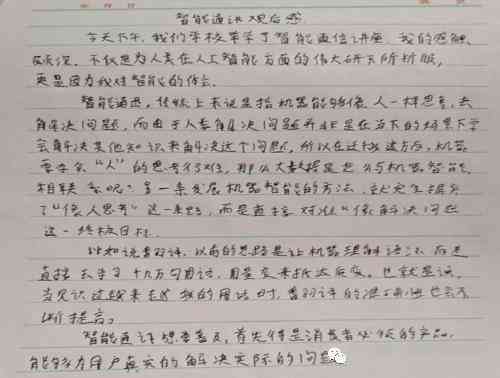 智能通讯观后感
今天下午,我们学校来学了智能通信讲座,我的感触
颇深,不仅是为人类在人工智能方面的伟大研究所折服,
更是因为我对智能的体会。
智能通讯,传统上来说是指机器能够像人一样思考,去
解决问题,而由于人类解决问题并非是在当下的场景下学
会解决其他知识来解决这个问题,所以在过程这方后,机器
要学会“人”的思考很难,那么大数据是怎么与机器智能
相联系呢?另一条发展机器智能的方法,就完全抛弃
了“像人思考”这一思路,而是直接对准“像解决问题
这一终极目标
比如说看翻译,以前的思路是让机器理解语法
直接去学习十几万句对话,用量变来抵达质变。也就是说,
当见识过越来越多的用法时,翻译的准确率也会不
断提高。
智能通讯想要普及,首先得是消费者必须的产品,
能够为用户真实的解决实际的问题